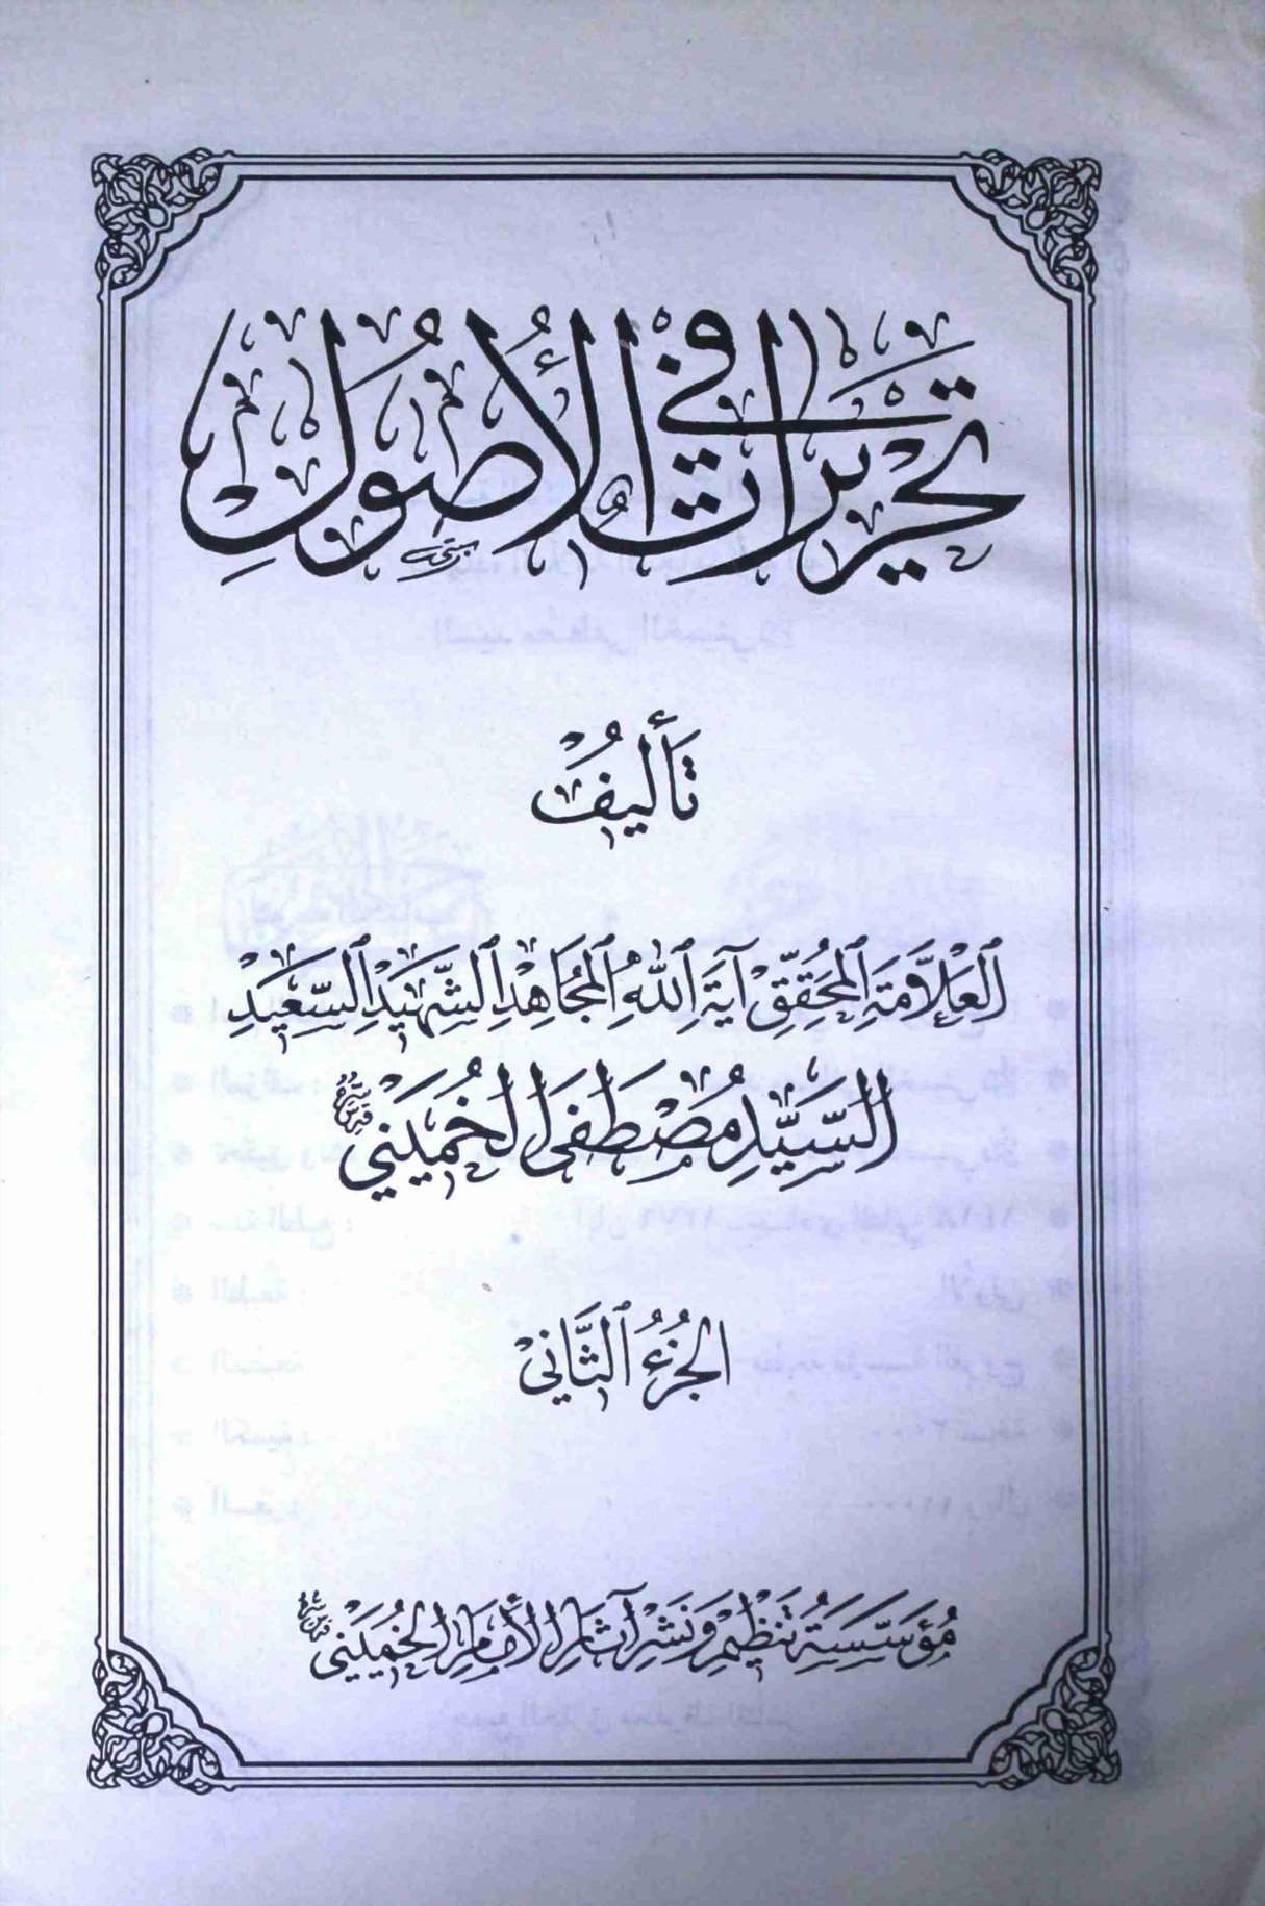 تحريرات في الأصول
تأليف
العلامة المحقق آية الله المجاهد الشهيد السعيد
السيد مصطفى الخميني قدس سره
الجزء الثاني
مؤسسة تنظيم ونشر آثار الإمام الخميني قدس سره